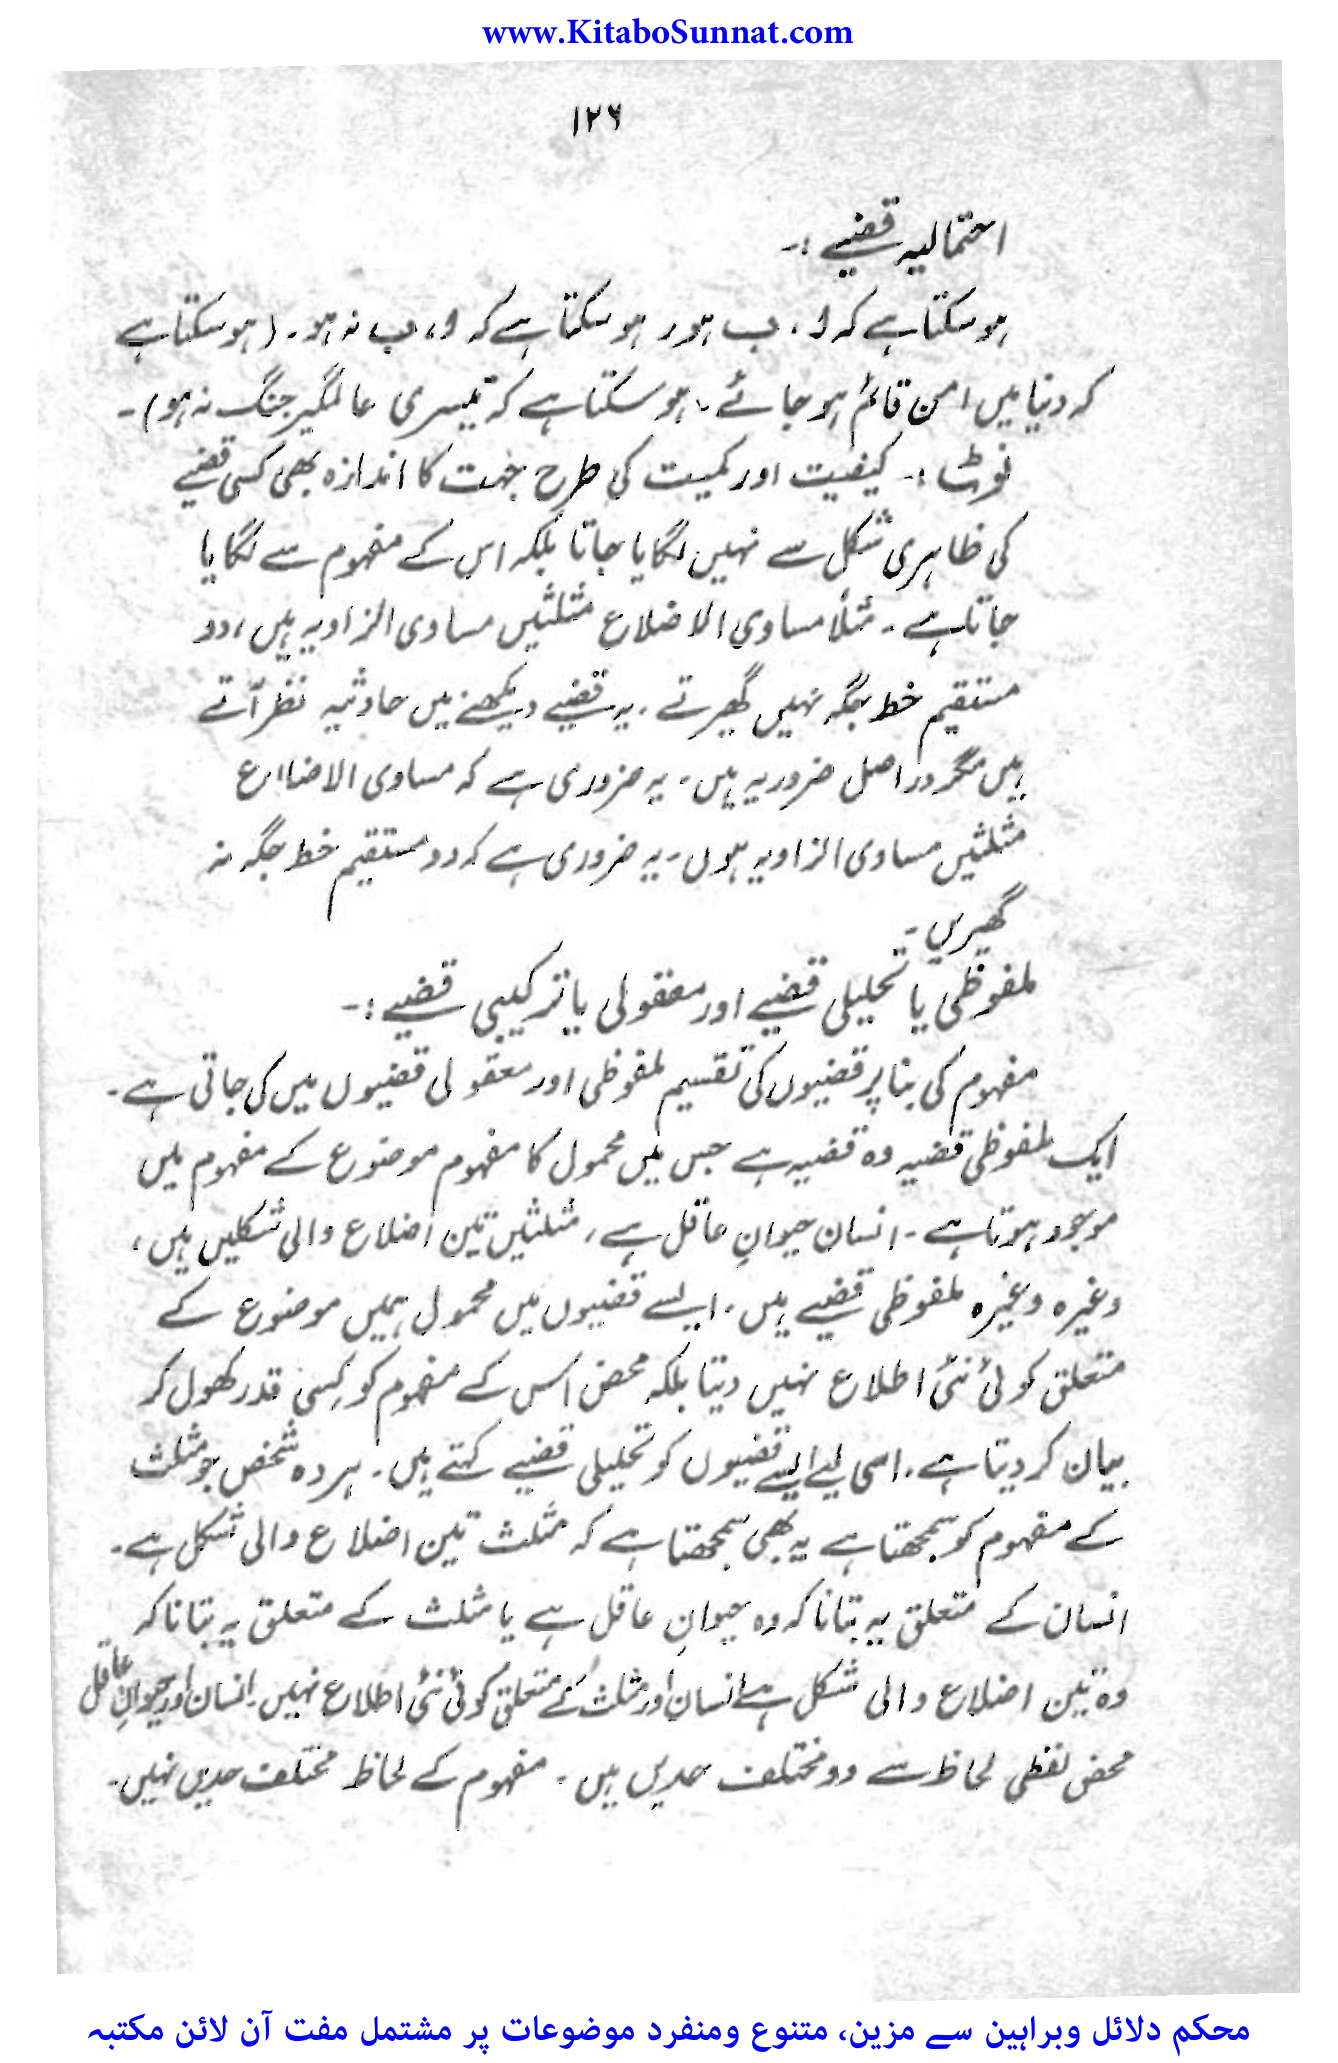 www.KitaboSunnat.com
۱۲۶
احتمالیہ قضیے :-
ہو سکتا ہے کہ ا ، ب ہو ، ہو سکتا ہے کہ ا ، ب نہ ہو۔ (ہو سکتا ہے
کہ دنیا میں امن قائم ہو جائے ، ہو سکتا ہے کہ تیسری عالمگیر جنگ نہ ہو)۔
نوٹ :- کیفیت اور کمیت کی طرح جہت کا اندازہ بھی کسی قضیے
کی ظاہری شکل سے نہیں لگایا جاتا بلکہ اس کے مفہوم سے لگایا
جاتا ہے۔ مثلاً مساوی الاضلاع مثلثیں مساوی الزاویہ ہیں ، دو
مستقیم خط جگہ نہیں گھیرتے ۔ یہ قضیے دیکھنے میں حادثیہ نظر آتے
ہیں مگر دراصل ضروریہ ہیں۔ یہ ضروری ہے کہ مساوی الاضلاع
مثلثیں مساوی الزاویہ ہوں۔ یہ ضروری ہے کہ دو مستقیم خط جگہ نہ
گھیریں۔
ملفوظی یا تحلیلی قضیے اور معقولی یا ترکیبی قضیے :-
مفہوم کی بنا پر قضیوں کی تقسیم ملفوظی اور معقولی قضیوں میں کی جاتی ہے۔
ایک ملفوظی قضیہ وہ قضیہ ہے جس میں محمول کا مفہوم موضوع کے مفہوم میں
موجود ہوتا ہے۔ انسان حیوانِ عاقل ہے ، مثلثیں تین اضلاع والی شکلیں ہیں ،
وغیرہ وغیرہ ملفوظی قضیے ہیں۔ ایسے قضیوں میں محمول ہمیں موضوع کے
متعلق کوئی نئی اطلاع نہیں دیتا بلکہ محض اس کے مفہوم کو کِسی قدر کھول کر
بیان کر دیتا ہے۔ اسی لیے ایسے قضیوں کو تحلیلی قضیے کہتے ہیں۔ ہر وہ شخص جو مثلث
کے مفہوم کو سمجھتا ہے یہ بھی سمجھتا ہے کہ مثلث تین اضلاع والی شکل ہے۔
انسان کے متعلق یہ بتانا کہ وہ حیوانِ عاقل ہے یا مثلث کے متعلق یہ بتانا کہ
وہ تین اضلاع والی شکل ہے انسان اور مثلث کے متعلق کوئی نئی اطلاع نہیں۔ انسان اور حیوانِ عاقل
محض لفظی لحاظ سے دو مختلف حدیں ہیں۔ مفہوم کے لحاظ مختلف حدیں نہیں۔
محکم دلائل وبراہین سے مزین، متنوع ومنفرد موضوعات پر مشتمل مفت آن لائن مکتبہ